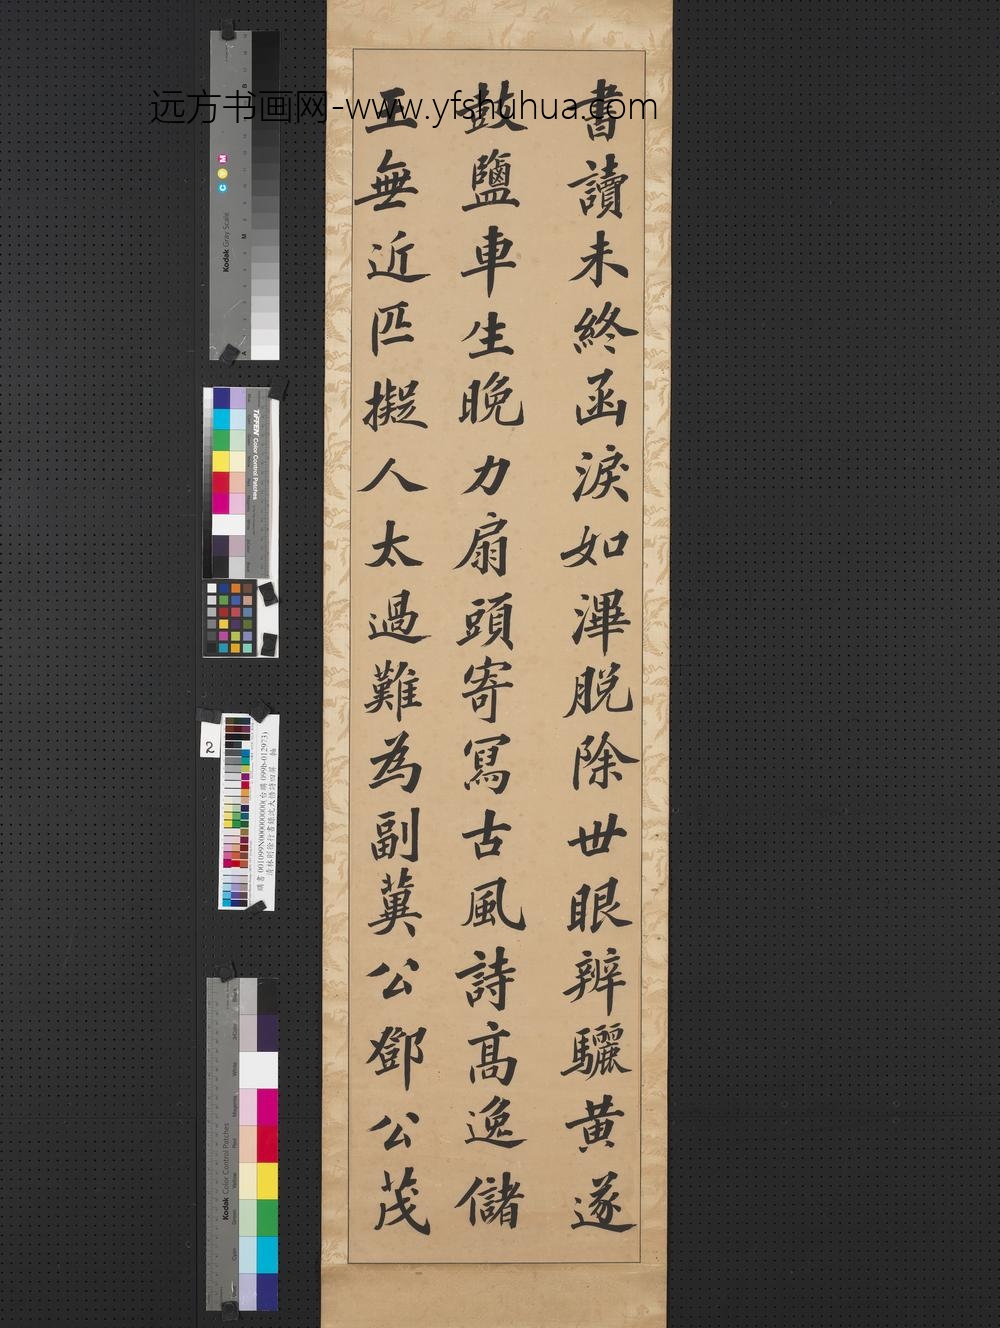 書讀未終函淚如渾脫除世眼辨驪黃遂
鼓鹽車生晚力扇頭寄寫古風詩高逸儲
王無近匹擬人太過難為副蓂公鄧公茂
远方书画网-www.yfshuhua.com
Kodak Gray Scale
C Y M
TIFFEN Color Control Patches
2
購書 001099N000000000(台購 099b-012973)
清林則徐行書錄沈大悟詩四屏 軸
Kodak Color Control Patches
Black
3/Color
White
Magenta
Red
Yellow
Green
Cyan